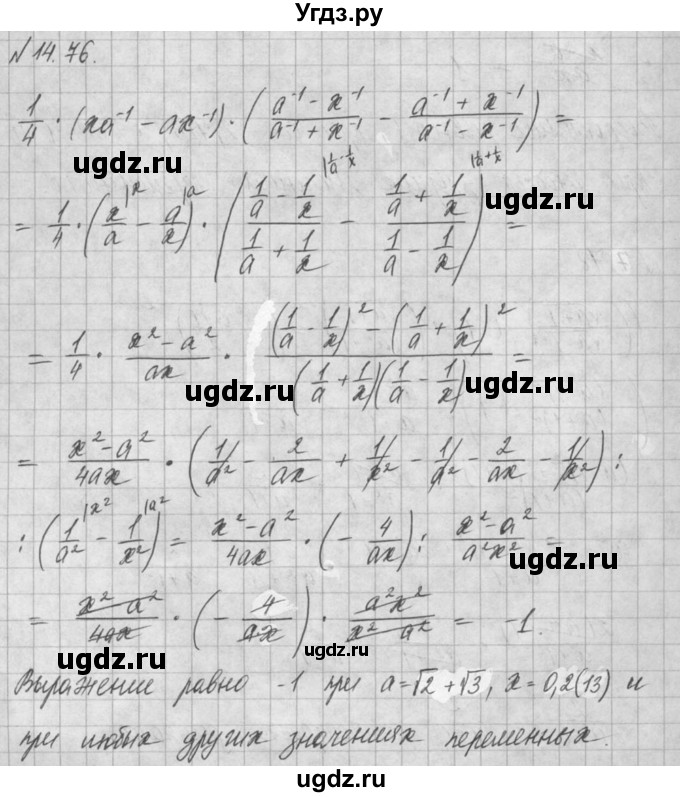 Угдз.ру
№14.76.
1/4 · (xa⁻¹ − ax⁻¹) · ((a⁻¹ − x⁻¹)/(a⁻¹ + x⁻¹) − (a⁻¹ + x⁻¹)/(a⁻¹ − x⁻¹)) =
ugdz.ru ugdz.ru
= 1/4 · (x/a |x − a/x |a) · ((1/a − 1/x)/(1/a + 1/x) |1/a · 1/x − (1/a + 1/x)/(1/a − 1/x) |1/a + 1/x) =
ugdz.ru
= 1/4 · (x² − a²)/(ax) · ((1/a − 1/x)² − (1/a + 1/x)²)/((1/a + 1/x)(1/a − 1/x)) =
ugdz.ru ugdz.ru
= (x² − a²)/(4ax) · (1/a² − 2/(ax) + 1/x² − 1/a² − 2/(ax) − 1/x²) :
ugdz.ru
: (1/a² |x² − 1/x² |a²) = (x² − a²)/(4ax) · (− 4/(ax)) : (x² − a²)/(a²x²) =
ugdz.ru ugdz.ru
= (x² − a²)/(4ax) · (− 4/(ax)) · (a²x²)/(x² − a²) = −1.
ugdz.ru ugdz.ru
Выражение равно -1 при a=√2+√3, x=0,2(13) и
ugdz.ru
при любых других значениях переменных.
ugdz.ru ugdz.ru